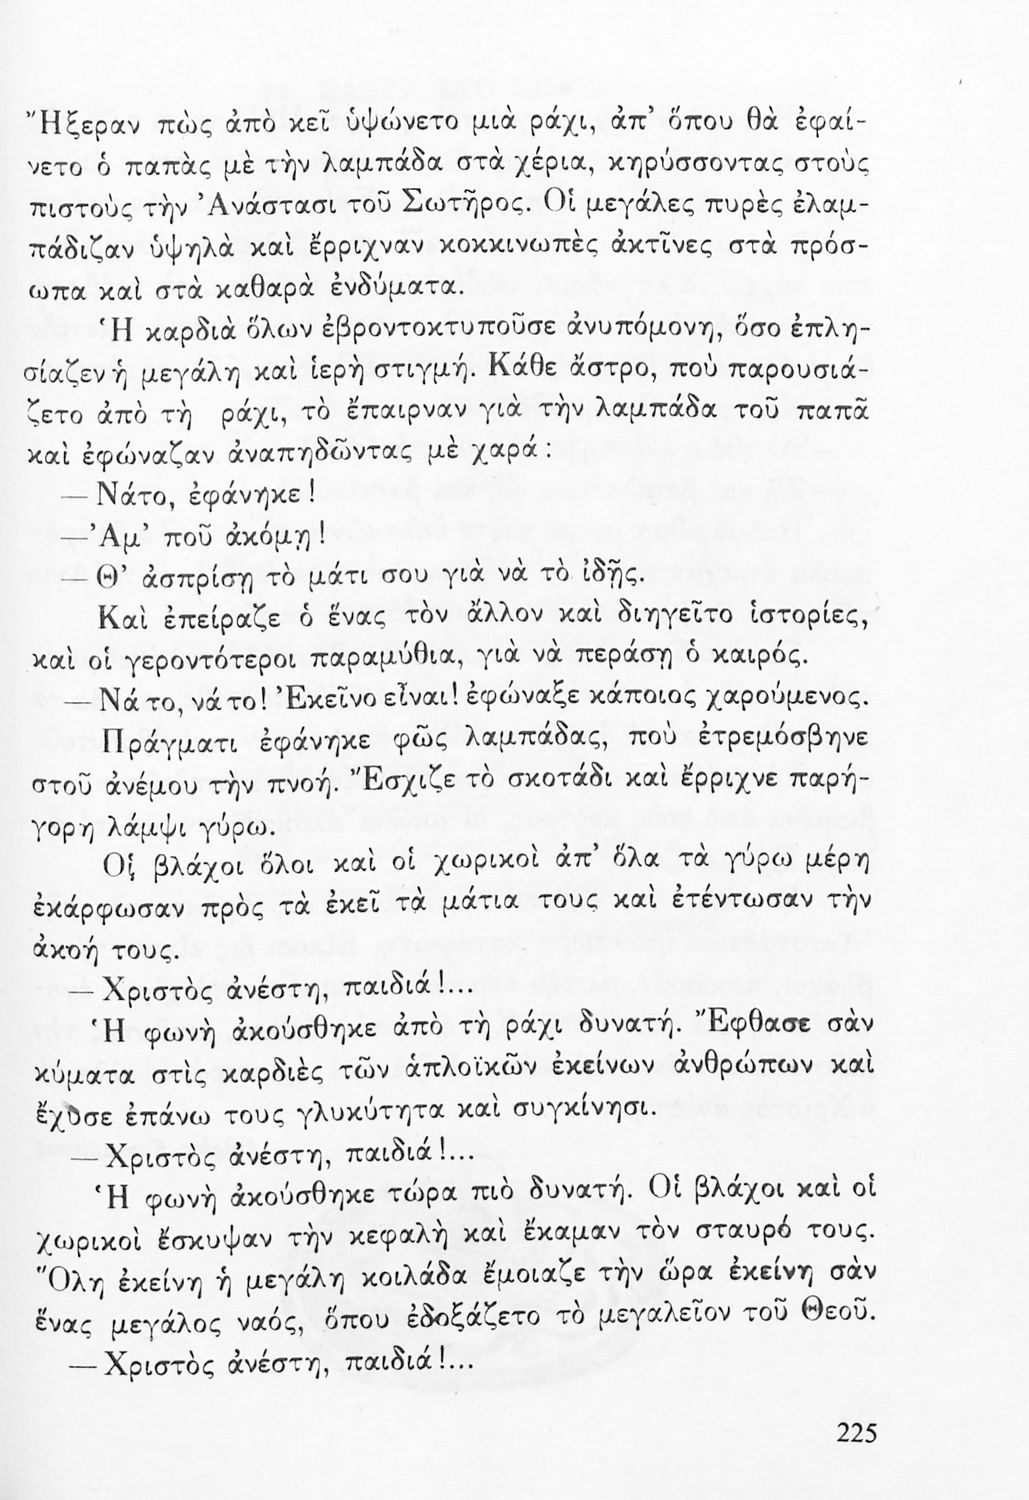 Ἤξεραν πὼς ἀπὸ κεῖ ὑψώνετο μιὰ ράχι, ἀπ’ ὅπου θὰ ἐφαί-
νετο ὁ παπὰς μὲ τὴν λαμπάδα στὰ χέρια, κηρύσσοντας στοὺς
πιστοὺς τὴν Ἀνάστασι τοῦ Σωτῆρος. Οἱ μεγάλες πυρὲς ἐλαμ-
πάδιζαν ὑψηλὰ καὶ ἔρριχναν κοκκινωπὲς ἀκτῖνες στὰ πρόσ-
ωπα καὶ στὰ καθαρὰ ἐνδύματα.
Ἡ καρδιὰ ὅλων ἐβροντοκτυποῦσε ἀνυπόμονη, ὅσο ἐπλη-
σίαζεν ἡ μεγάλη καὶ ἱερὴ στιγμή. Κάθε ἄστρο, ποὺ παρουσιά-
ζετο ἀπὸ τὴ ράχι, τὸ ἔπαιρναν γιὰ τὴν λαμπάδα τοῦ παπᾶ
καὶ ἐφώναζαν ἀναπηδῶντας μὲ χαρά:
— Νάτο, ἐφάνηκε!
— Ἀμ’ ποῦ ἀκόμη!
— Θ’ ἀσπρίσῃ τὸ μάτι σου γιὰ νὰ τὸ ἰδῇς.
Καὶ ἐπείραζε ὁ ἕνας τὸν ἄλλον καὶ διηγεῖτο ἱστορίες,
καὶ οἱ γεροντότεροι παραμύθια, γιὰ νὰ περάσῃ ὁ καιρός.
— Νά το, νά το! Ἐκεῖνο εἶναι! ἐφώναξε κάποιος χαρούμενος.
Πράγματι ἐφάνηκε φῶς λαμπάδας, ποὺ ἐτρεμόσβηνε
στοῦ ἀνέμου τὴν πνοή. Ἔσχιζε τὸ σκοτάδι καὶ ἔρριχνε παρή-
γορη λάμψι γύρω.
Οἱ βλάχοι ὅλοι καὶ οἱ χωρικοὶ ἀπ’ ὅλα τὰ γύρω μέρη
ἐκάρφωσαν πρὸς τὰ ἐκεῖ τὰ μάτια τους καὶ ἐτέντωσαν τὴν
ἀκοή τους.
— Χριστὸς ἀνέστη, παιδιά!...
Ἡ φωνὴ ἀκούσθηκε ἀπὸ τὴ ράχι δυνατή. Ἔφθασε σὰν
κύματα στὶς καρδιὲς τῶν ἁπλοϊκῶν ἐκείνων ἀνθρώπων καὶ
ἔχυσε ἐπάνω τους γλυκύτητα καὶ συγκίνησι.
— Χριστὸς ἀνέστη, παιδιά!...
Ἡ φωνὴ ἀκούσθηκε τώρα πιὸ δυνατή. Οἱ βλάχοι καὶ οἱ
χωρικοὶ ἔσκυψαν τὴν κεφαλὴ καὶ ἔκαμαν τὸν σταυρό τους.
Ὅλη ἐκείνη ἡ μεγάλη κοιλάδα ἔμοιαζε τὴν ὥρα ἐκείνη σὰν
ἕνας μεγάλος ναός, ὅπου ἐδοξάζετο τὸ μεγαλεῖον τοῦ Θεοῦ.
— Χριστὸς ἀνέστη, παιδιά!...
225